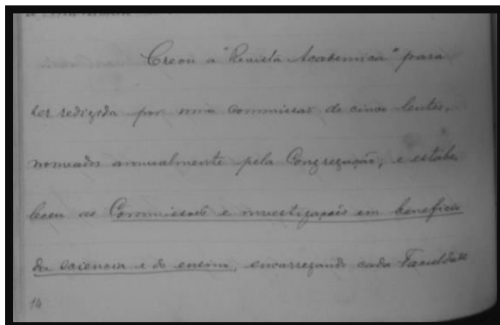 Creou a "Revista Academica" para
ser redigida por uma commissão de cinco lentes,
nomeados annualmente pela Congregação, e estabe
leceu as Commissões e investigações em beneficio
da sciencia e do ensino, encarregando cada Faculdade
14